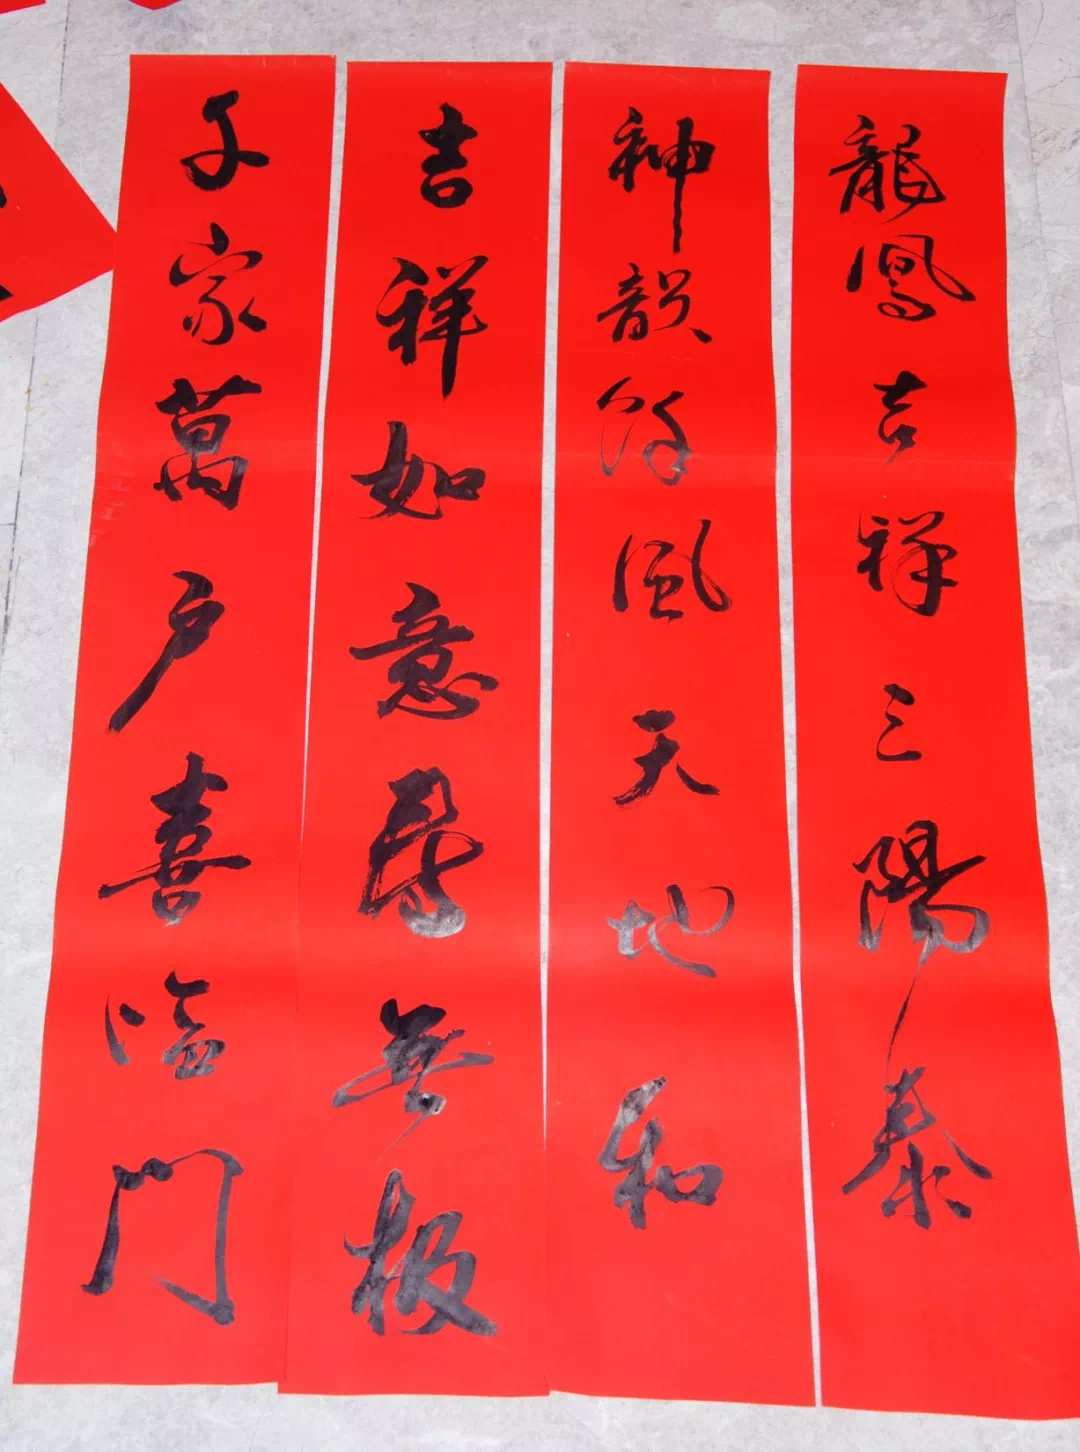 龍鳳吉祥三陽泰
神韻風天地和
吉祥如意無極
千家萬戶喜臨門